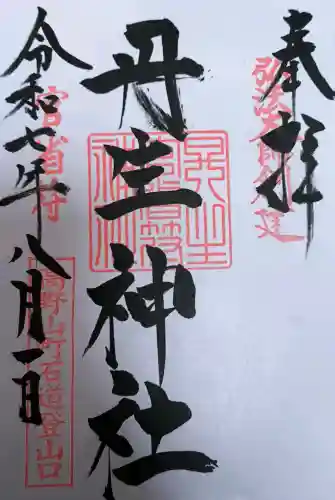 奉拝
弘法大師創建
丹生神社
令和七年八月一日
官省符
高野山町石道登山口